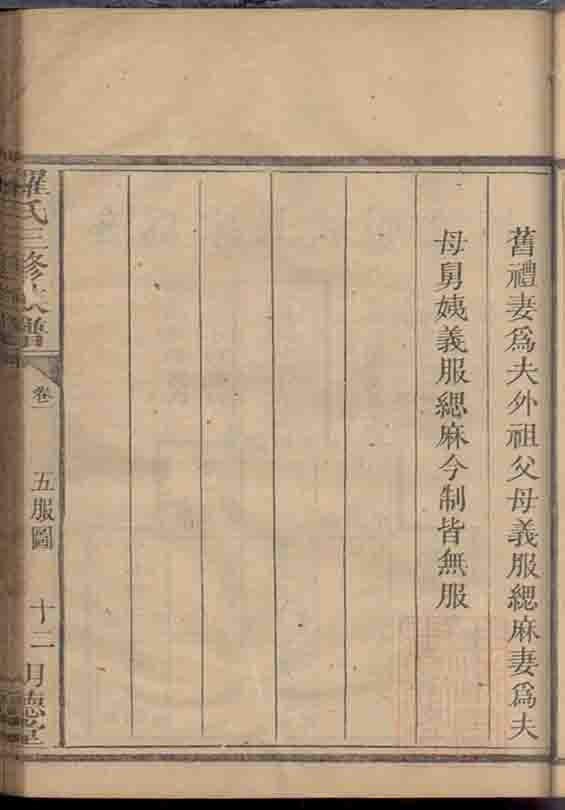 舊禮妻爲夫外祖父母義服緦麻妻爲夫
母舅姨義服緦麻今制皆無服
羅氏三修族譜
卷一
五服圖
十二
明德堂